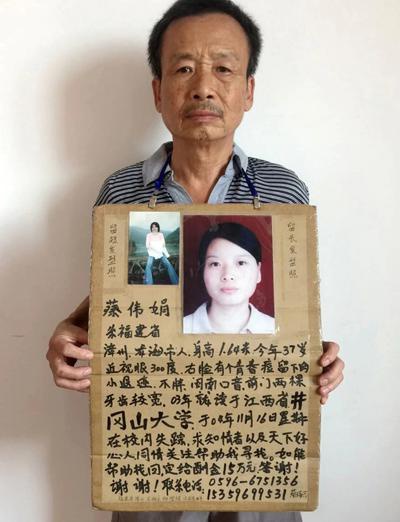 留短发型照
留长发型照
蔡伟娟
系福建省
漳州、龙海市人、身高1.64米 今年37岁
近视眼300度、右脸有个青春痘留下的
小 迹、不胖、闽南口音、前门两棵
牙齿较宽、03年就读于江西省井
冈山大学、于04年11月16日星期
在校内失踪、求知情者以及天下好
心人同情关注帮助我寻找、如能
帮助找回、定给酬金15万元答谢！
谢谢！联系电话：0596-6751356
15359699531